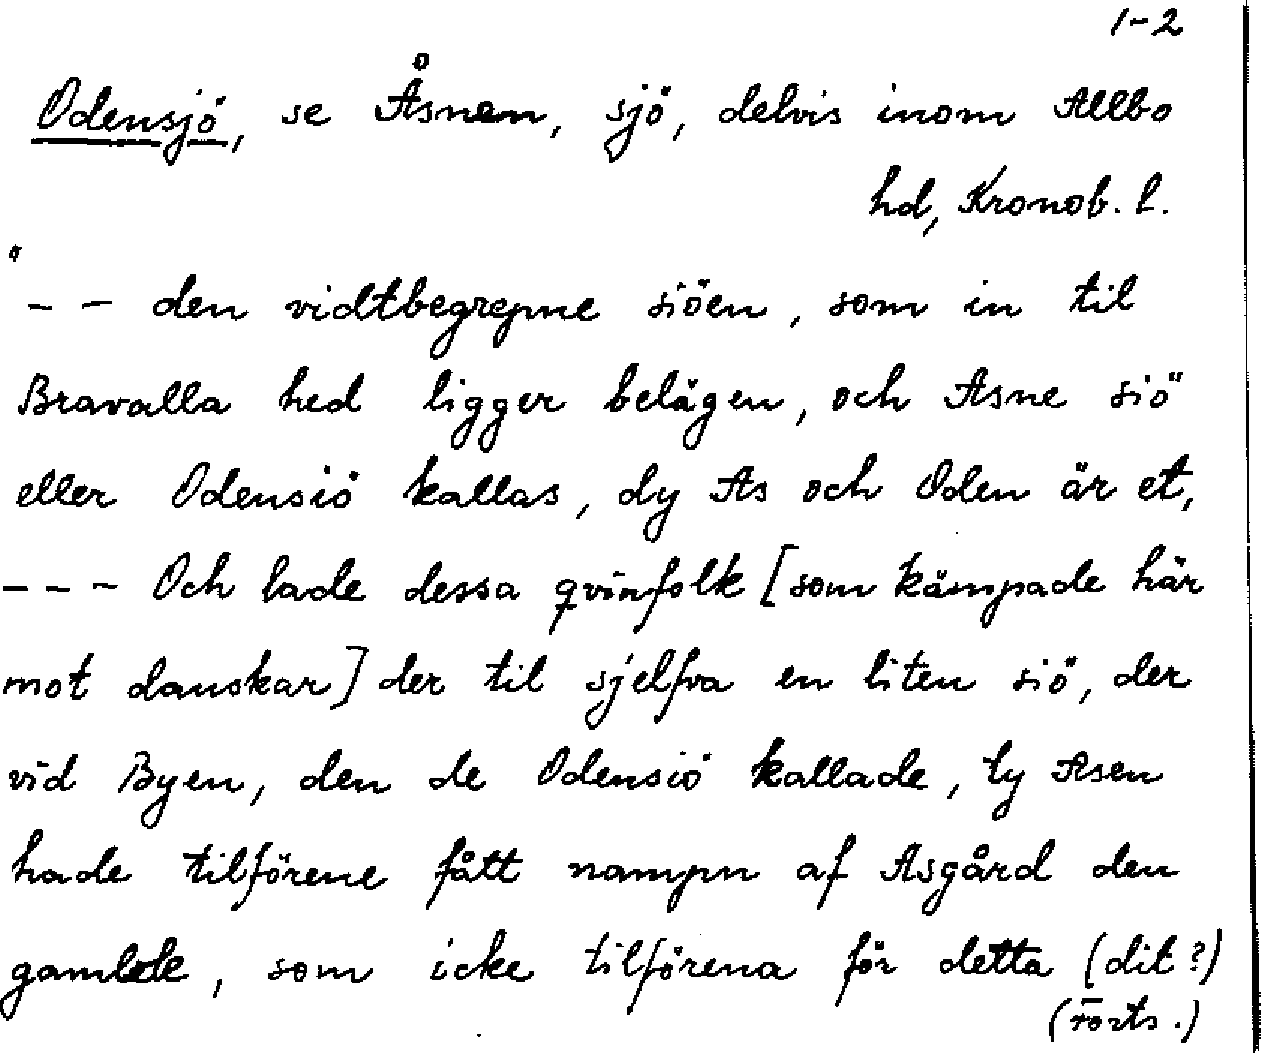 1-2
Odensjö, se Åsnen, sjö, delvis inom Allbo
hd, Kronob. l.
"-- den vidtbegrepne siöen, som in til
Bravalla hed ligger belägen, och Asne siö
eller Odensiö kallas, dy As och Oden är et,
--- Och lade dessa qvinfolk [som kämpade här
mot danskar] der til sjelfva en liten siö, der
vid Byen, den de Odensiö kallade, ty Asen
hade tilförene fått nampn af Asgård den
, som icke tilförena för detta (dit?)
(Forts.)